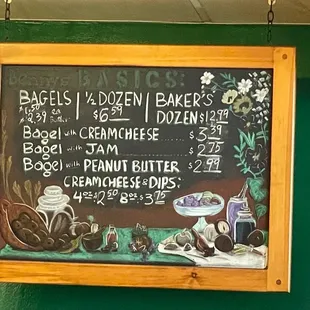 BASICS:
BAGELS | ½ DOZEN | BAKER'S
$6.59 DOZEN $12.99
Bagel with CREAMCHEESE $3.39
Bagel with JAM $2.75
Bagel with PEANUT BUTTER $2.99
CREAMCHEESE & DIPS:
4oz $2.50 8oz $3.75